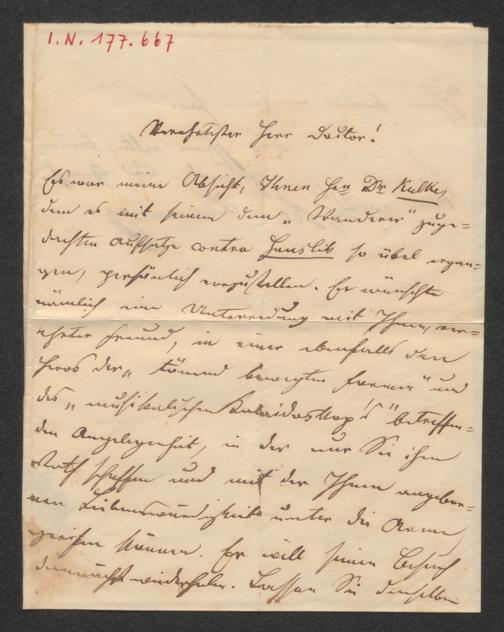 I.N. 177.667
Verehrtester Herr Doctor!
Es war meine Absicht, Ihnen Hrn Dr. Kulke,
dem es mit seinem dem „Wanderer" zuge-
dachten Aufsatze contra Hanslik so übel ergan-
gen, persönlich vorzustellen. Er wünschte
nämlich eine Unterredung mit Ihnen, ver-
ehrter Freund, in einer ebenfalls den
Heros der „tönend bewegten Formen" und
des „musikalischen Kaleidoskop's" betreffen-
den Angelegenheit, in der nur Sie ihm
Rath schaffen und mit der Ihnen angebor-
nen Liebenswürdigkeit unter die Arme
greifen können. Er will seinen Besuch
demnächst wiederholen. Lassen Sie denselben